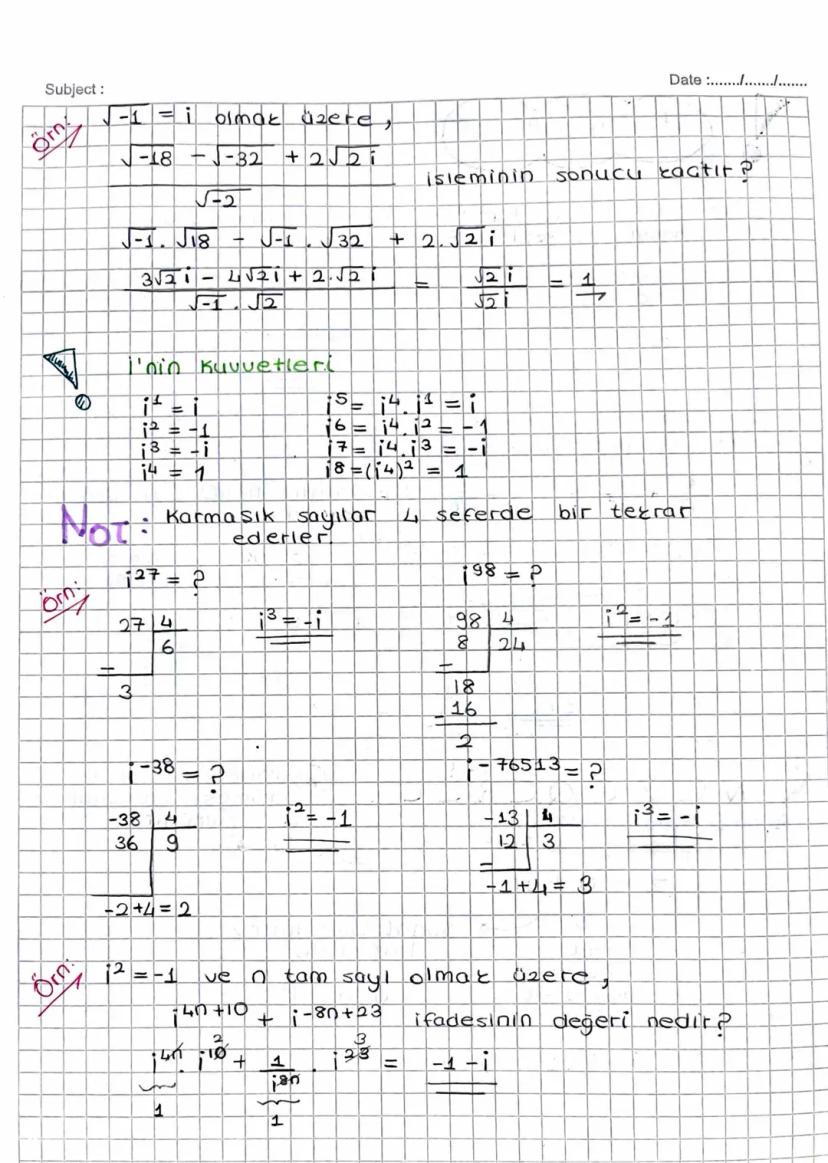 Subject :
Date :......./......./.......
Örn: √-1 = i olmak üzere,
(√-18 - √-32 + 2√2 i) / √-2 işleminin sonucu kaçtır?
√-1 . √18 - √-1 . √32 + 2.√2 i
(3√2 i - 4√2 i + 2.√2 i) / (√-1 . √2) = √2 i / √2 i = 1
i'nin Kuvvetleri
i¹ = i i⁵ = i⁴.i¹ = i
i² = -1 i⁶ = i⁴.i² = -1
i³ = -i i⁷ = i⁴.i³ = -i
i⁴ = 1 i⁸ = (i⁴)² = 1
NOT: Karmaşık sayılar 4 seferde bir tekrar
ederler.
Örn: i²⁷ = ? i⁹⁸ = ?
27 | 4 i³ = -i 98 | 4 i² = -1
6 8 | 24
- -
3 18
-16
2
i⁻³⁸ = ? i⁻⁷⁶⁵¹³ = ?
-38 | 4 i² = -1 -13 | 4 i³ = -i
36 | 9 12 | 3
-1+4 = 3
-2+4 = 2
Örn: i² = -1 ve n tam sayı olmak üzere,
i⁴ⁿ⁺¹⁰ + i⁻⁸ⁿ⁺²³ ifadesinin değeri nedir?
2 3
i⁴ⁿ . i¹⁰ + 1/i⁸ⁿ . i²³ = -1 - i
1 1